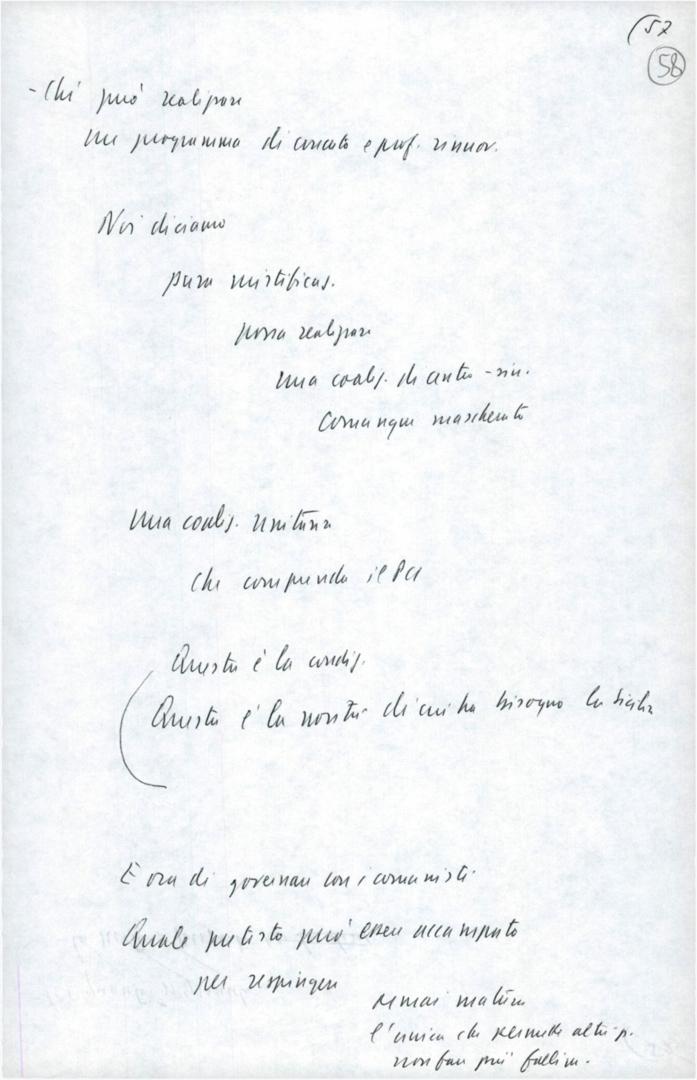 (57
58
- Chi può realizzare
un programma di concreto e prof. rinnov.
Noi diciamo
pura mistificaz.
possa realizzare
una coaliz. di centro-sin.
comunque mascherato
una coaliz. unitaria
che comprenda il PCI
Questa è la condiz.
Questa è la di cui ha bisogno la Sicilia
È ora di governare con i comunisti
Quale pretesto può essere accampato
per respingere
ormai matura
l'unica che
non può fallire.